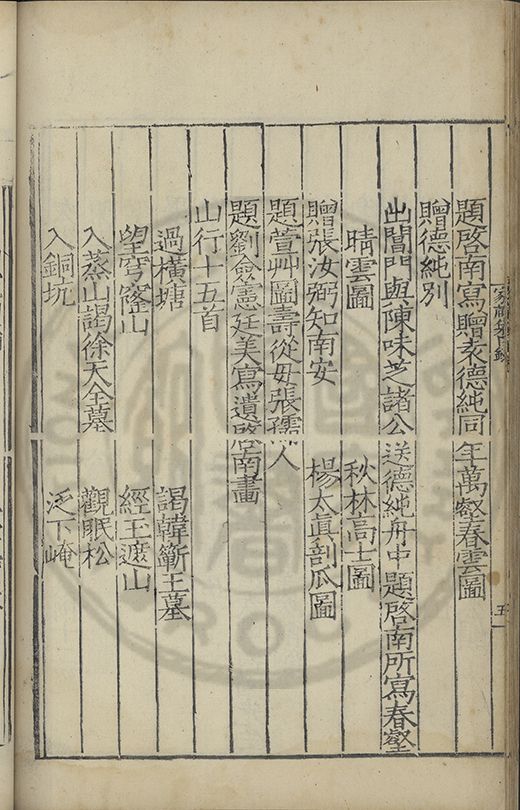 題啓南寫贈袁德純同年萬壑春雲圖
贈德純別
出閶門與陳味芝諸公送德純舟中題啓南所寫春壑
晴雲圖 秋林高士圖
贈張汝弼知南安 楊太真剖瓜圖
題萱艸圖壽從毋張孺人
題劉僉憲廷美寫遺啓南畵
山行十五首
過橫塘 謁韓蘄王墓
望穹窿山 經玉遮山
入蒸山謁徐天全墓 觀眠松
入銅坑 泛下崦
五